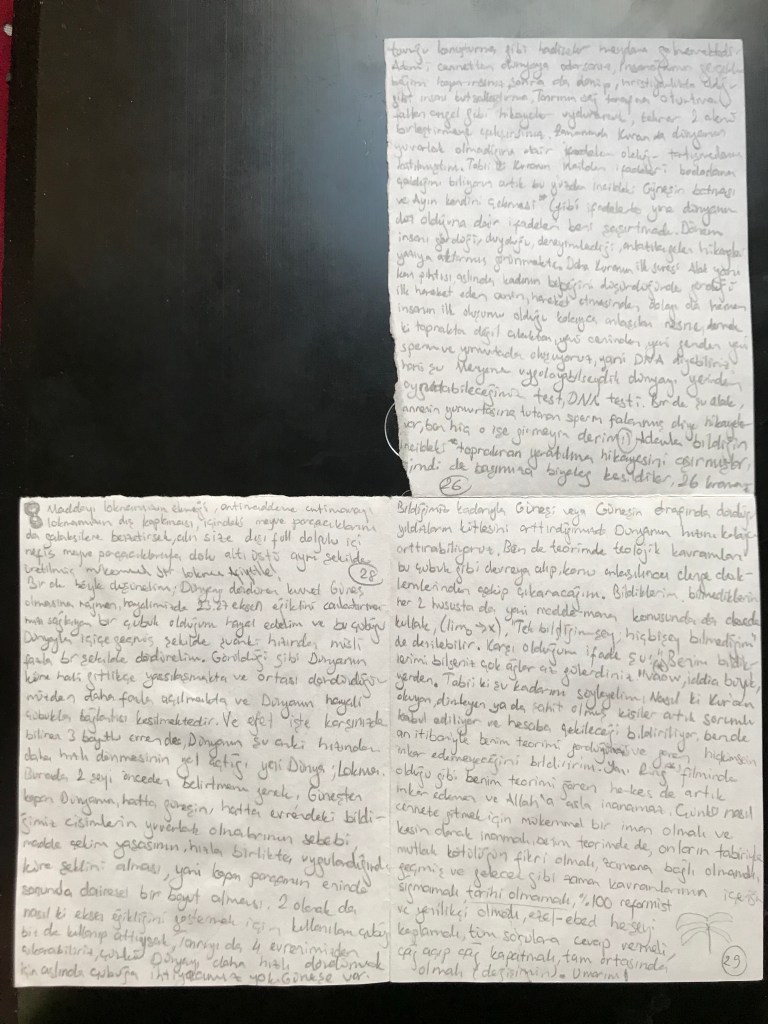 tavuğu konuşturma gibi hadiseler meydana gelmektedir.
Adem'i cennetten dünyaya
sonra da dönüp, hristiyanlıkta olduğu
gibi insanı kutsallaştırma, Tanrının sağ tarafına oturtma
gibi hikayeler uydurarak, tekrar 2 alemi
birleştirmeye çalışırsınız. Zamanında Kuran da dünyanın
yuvarlak olmadığına dair ifadeler olduğu tartışmalarına
katılmıştım. Tabii ki Kuranın ifadeleri
çaldığını biliyorum artık bu yüzden incildeki Güneşin batması
ve Ayın kendini çekmesi" gibi ifadelerle yine dünyanın
düz olduğuna dair ifadeler beni şaşırtmadı. Dönem
insanı gördüğü, duyduğu, deneyimlediği, anlatılagelen hikayeleri
yazıya aktarmış görünmekte. Daha Kuranın ilk suresi Alak yani
kan pıhtısı aslında kadının bebeğini düşürdüğünde gördüğü
ilk hareket eden hareket etmesinden dolayı da hemen
insanın ilk oluşumu olduğu kolayca anlaşılan nesne, demek
ki topraktan değil alaktan, yani yani genden yani
sperm ve yumurtadan oluşuyoruz, yani DNA diyebiliriz
hani şu Meryeme uygulayabilseydik dünyayı yerinden
oynatabileceğimiz test, DNA testi. Bir de şu alak,
annenin yumurtasına tutunan sperm falanmış diye hikayeler
var, ben hiç o işe girmeyin derim :) Adamlar bildiğin
incildeki "topraktan yaratılma hikayesini aşırmışlar,
şimdi de başımıza kesildiler, 26
26
8 Maddeyi lokmamızın ekmeği, antimaddeye
lokmamızın dış kaplaması içindeki meyve parçacıklarını
da benzetirsek, alın size dışı full dolgulu içi
nefis meyve parçacıklarıyla dolu altı üstü aynı şekilde
üretilmiş, mükemmel bir lokma
28
Bir de böyle düşünelim; Dünyayı döndüren kuvvet Güneş
olmasına rağmen, hayalimizde 23,27 eksen eğikliğini canlandırma-
mızı sağlayan bir çubuk olduğunu hayal edelim ve bu çubuğu
Dünyayla içiçe geçmiş şekilde şuanki hızından misli
fazla bir şekilde döndürelim. Görüldüğü gibi Dünyanın
küre hali gittikçe yassılaşmakta ve ortası döndürdüğü-
müzden daha fazla açılmakta ve Dünyanın hayali
çubukla bağlantısı kesilmektedir. Ve evet işte karşınızda
bilinen 3 boyutlu evrende, Dünyanın şu anki hızından
daha hızlı dönmesinin yol açtığı yeni Dünya; Lokma.
Burada, 2 şeyi önceden belirtmem gerek, Güneşten
kopan Dünyanın, hatta güneşin, hatta evrendeki bildi-
ğimiz cisimlerin yuvarlak olmalarının sebebi,
madde çekim yasasının, hızla birlikte uygulandığında
küre şeklini alması, yani kopan parçanın eninde
sonunda dairesel bir boyut alması. 2 olarak da
nasıl ki eksen eğikliğini göstermek için kullanılan çubuğu
biz de kullanıp attıysak, Tanrıyı da 4 evrenimizden
çıkarabiliriz, çünkü Dünyayı daha hızlı döndürmek
için aslında çubuğa ihtiyacımız yok. Güneşe var.
Bildiğimiz kadarıyla Güneşi veya Güneşin etrafında döndüğü
yıldızların kütlesini arttırdığımızda Dünyanın hızını kolayca
arttırabiliyoruz. Ben de teorimde teolojik kavramları
bu çubuk gibi devreye alıp, konu anlaşılınca denk-
lemlerimden çekip çıkaracağım. Bildiklerim, bilmediklerim
her 2 hususta da, yeni madde-mana konusunda da
kullak, (lim → x). "Tek bildiğim şey hiçbişey bilmediğim"
de denilebilir. Karşı olduğum ifade şu; "Benim bildik-
lerimi bilseniz çok ağlar az gülerdiniz" Vaaow, iddia büyük,
yerden. Tabii ki şu kadarını söyleyelim; Nasıl ki Kur'an
okuyan, dinleyen ya da şahit olmuş kişiler artık sorumlu
kabul ediliyor ve hesaba çekileceği bildiriliyor, ben de
an itibariyle benim teorimi gören hiçkimsenin
inkar edemeyeceğini bildiririm. Yani "Ring" filminde
olduğu gibi benim teorimi gören herkes de artık
inkar edemez ve Allah'a asla inanamaz. Çünkü nasıl
cennete gitmek için mükemmel bir iman olmalı ve
kesin olarak inanmalı, benim teorimde de, onların tabiriyle
mutlak kötülüğün fikri olmalı, zamana bağlı olmamalı,
geçmiş ve gelecek gibi zaman kavramlarının içeriğine
sığmamalı, tarihi olmamalı, %100 reformist
ve yenilikçi olmalı, ezel-ebed herşeyi
kaplamalı, tüm sorulara cevap vermeli,
çağ açıp çağ kapatmalı, tam ortasında
olmalı değişimin. Umarım!
29